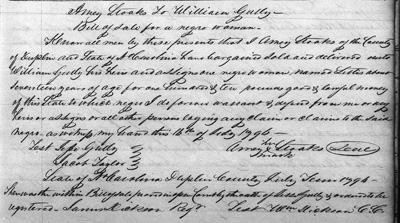 Amey Stoaks To William Gully
Bill of sale for a negro woman
Know all men by these presents that I Amey Stoaks of the County
of Duplin and State of N Carolina have bargained sold and delivered unto
William Gully his heirs and assigns one negro woman named about
Seventeen years of age for one hundred & ten pounds good & lawful money
of this State to which negro I do forever warrant & defend from me or my
heirs or assigns or all other persons laying any claim or claims to the said
negro as witness my hand this 16th of July 1796
Test Jeffe Gully Amey her Stoaks Seal
Jacob Taylor mark
State of N Carolina Duplin County July Term 1796
Then was the within Bill of sale proved in open Court by the oath of Gully & ordered to be
registered Test Wm Dickson C.C.